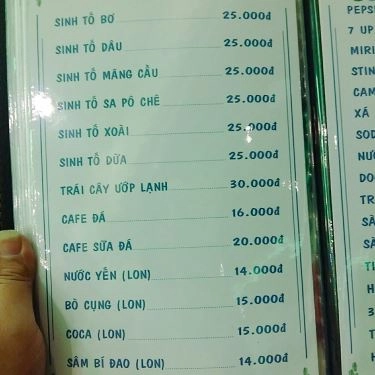 SINH TỐ BƠ 25.000đ
SINH TỐ DÂU 25.000đ
SINH TỐ MÃNG CẦU 25.000đ
SINH TỐ SA PÔ CHÊ 25.000đ
SINH TỐ XOÀI 25.000đ
SINH TỐ DỪA 25.000đ
TRÁI CÂY ƯỚP LẠNH 30.000đ
CAFE ĐÁ 16.000đ
CAFE SỮA ĐÁ 20.000đ
NƯỚC YẾN (LON) 14.000đ
BÒ CỤNG (LON) 15.000đ
COCA (LON) 15.000đ
SÂM BÍ ĐAO (LON) 14.000đ
PEPS
7 UP
MIRI
STIN
CAM
XÁ
SOD
NƯỚ